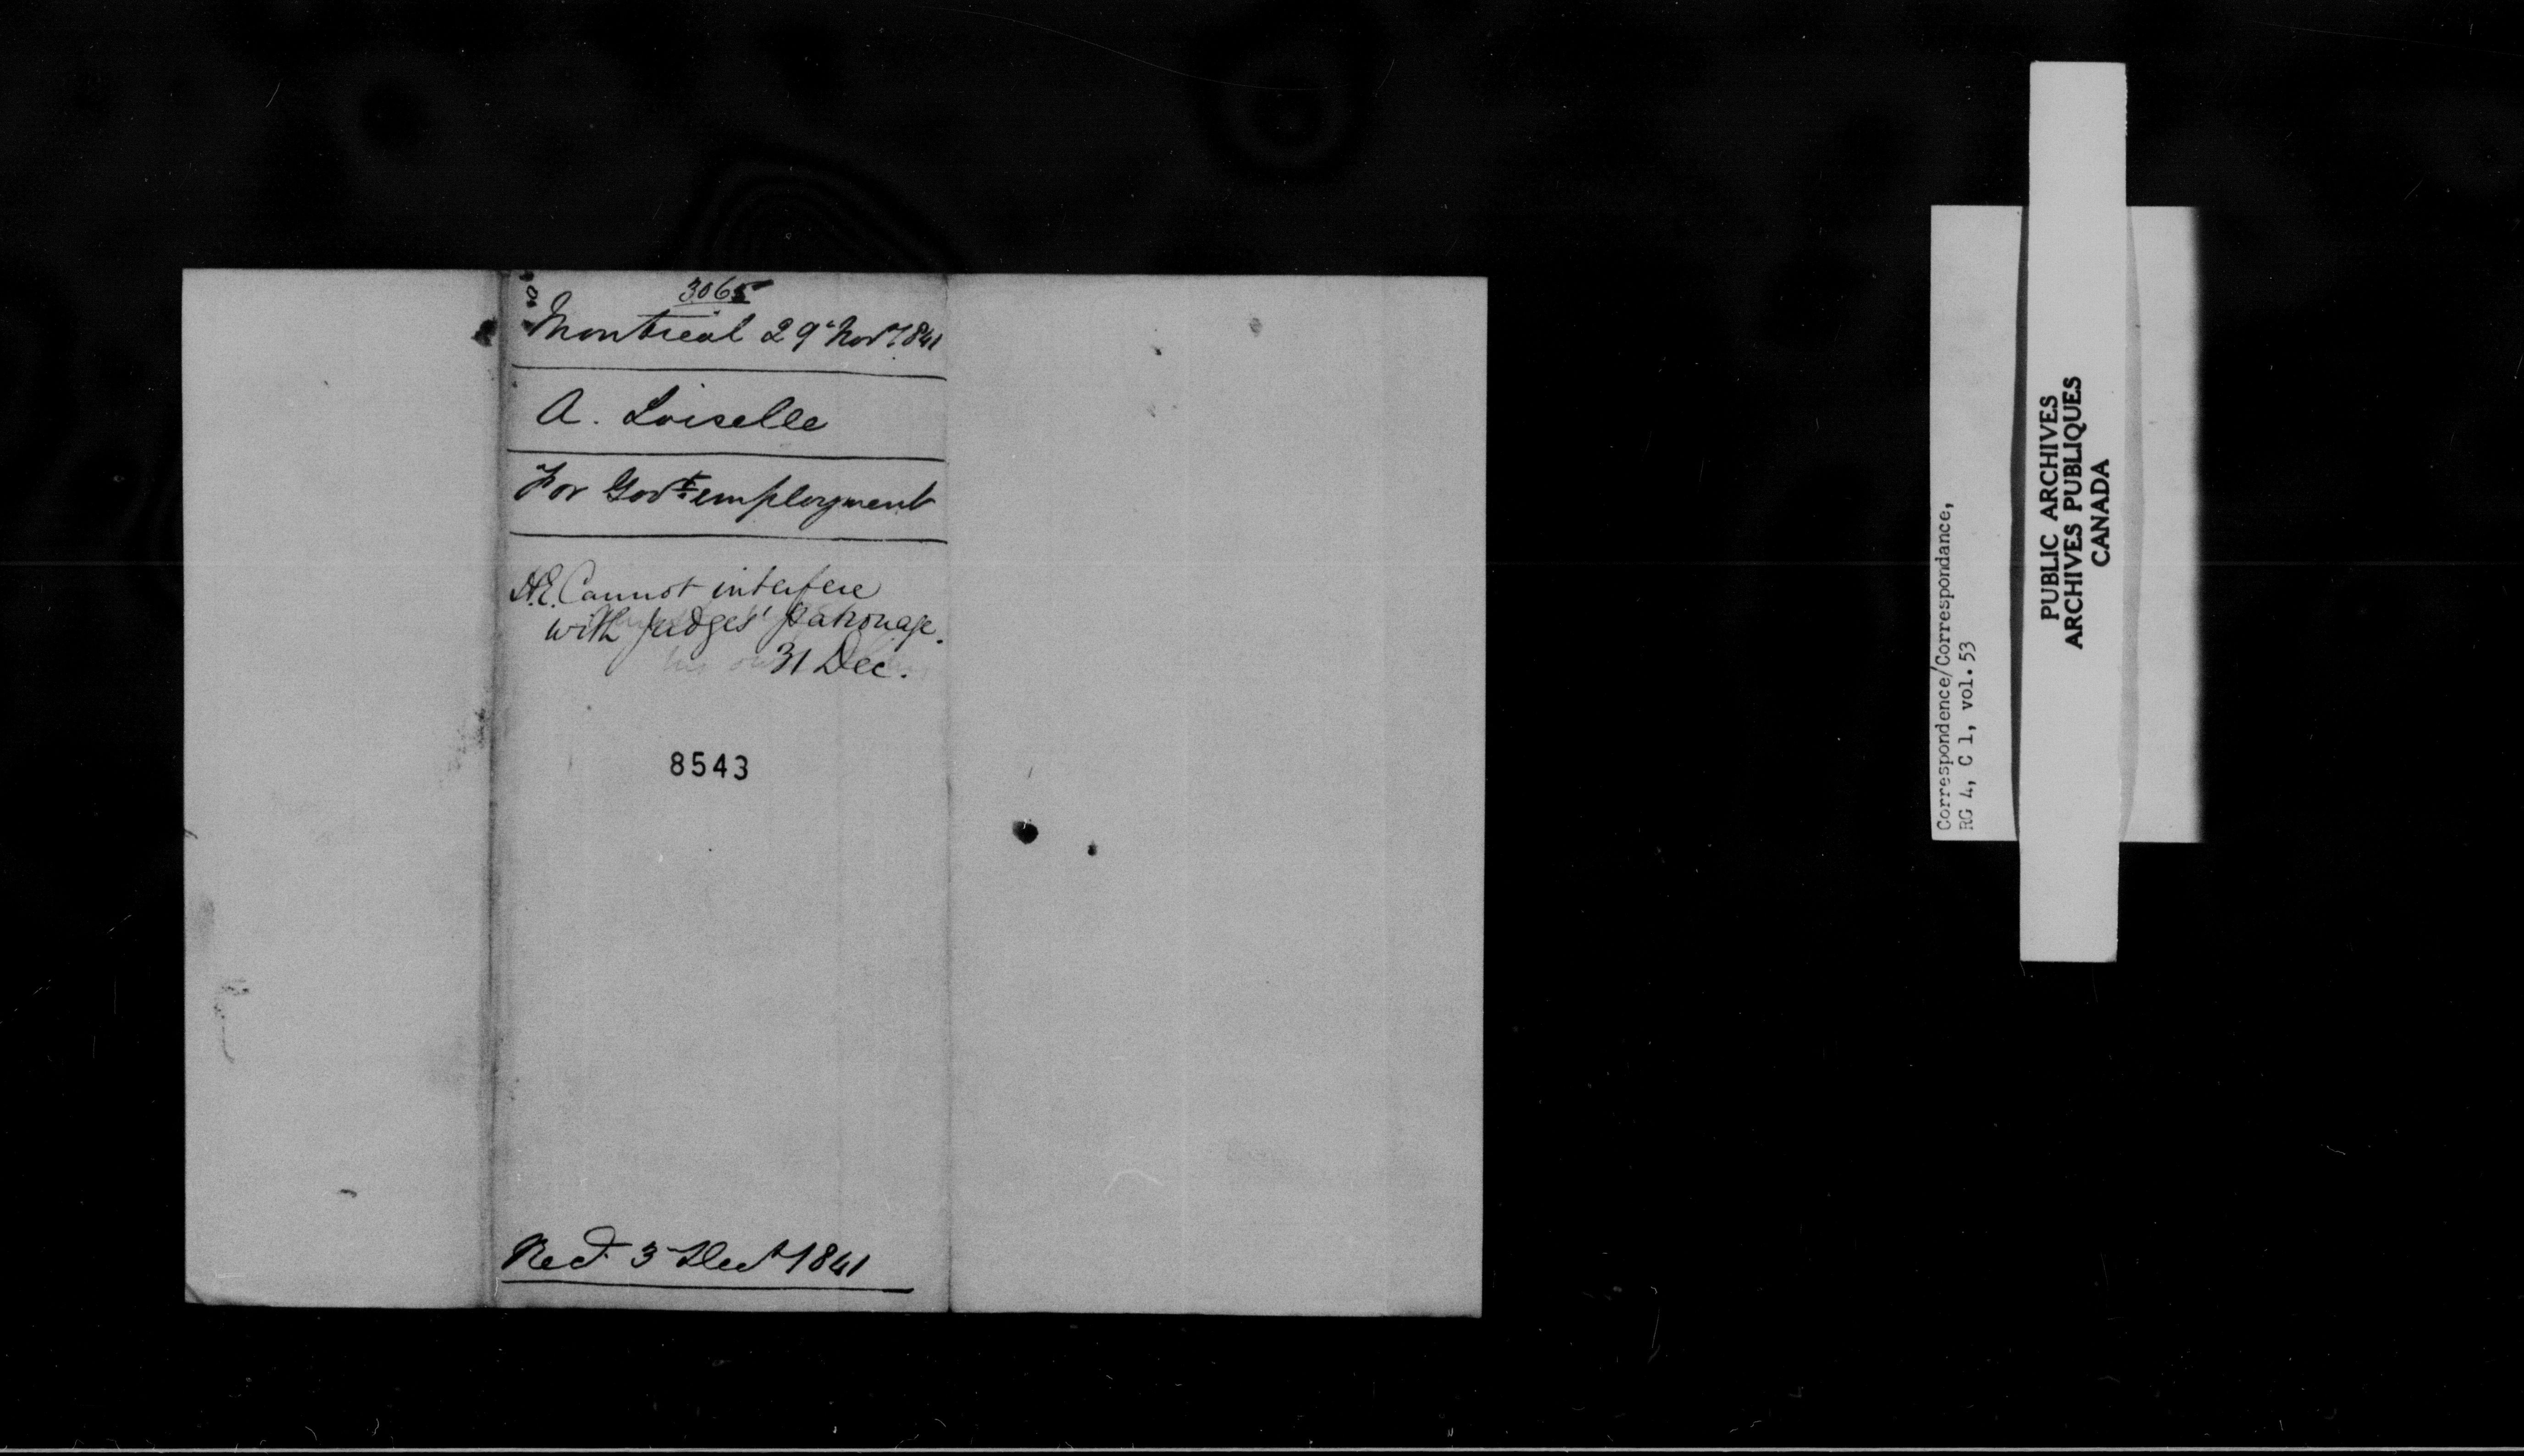 3065
Montreal 29 Novr 1841
A. Loiselle
For Govt. employment
H.E. Cannot interfere
with Judges' patronage.
31 Dec.
8543
Recd. 3 Decr 1841
Correspondence/Correspondance,
RG 4, C 1, vol. 53
PUBLIC ARCHIVES
ARCHIVES PUBLIQUES
CANADA